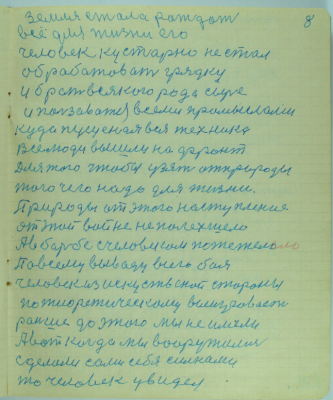 Земля стала рождат
8
всё для жизни его
человек кустарно не стал
обработоват грядку
и брат всякого рода сыре
и ползоватся всеми промыслами
куда пущеная вся техника
Все люди вышли на фронт
Для того чтобы узят от природы
того чего надо для жизни.
Природы от этого наступление
от этой войне не полехшело
А в барбе с человиком потежелало
По всему выводу всего боя
человек из искуствской стороны
по теоретическому выигровает
раньше до этого мы не имели
А вот когда мы вооружилис
сделали сами себя силнами
то человек увидел